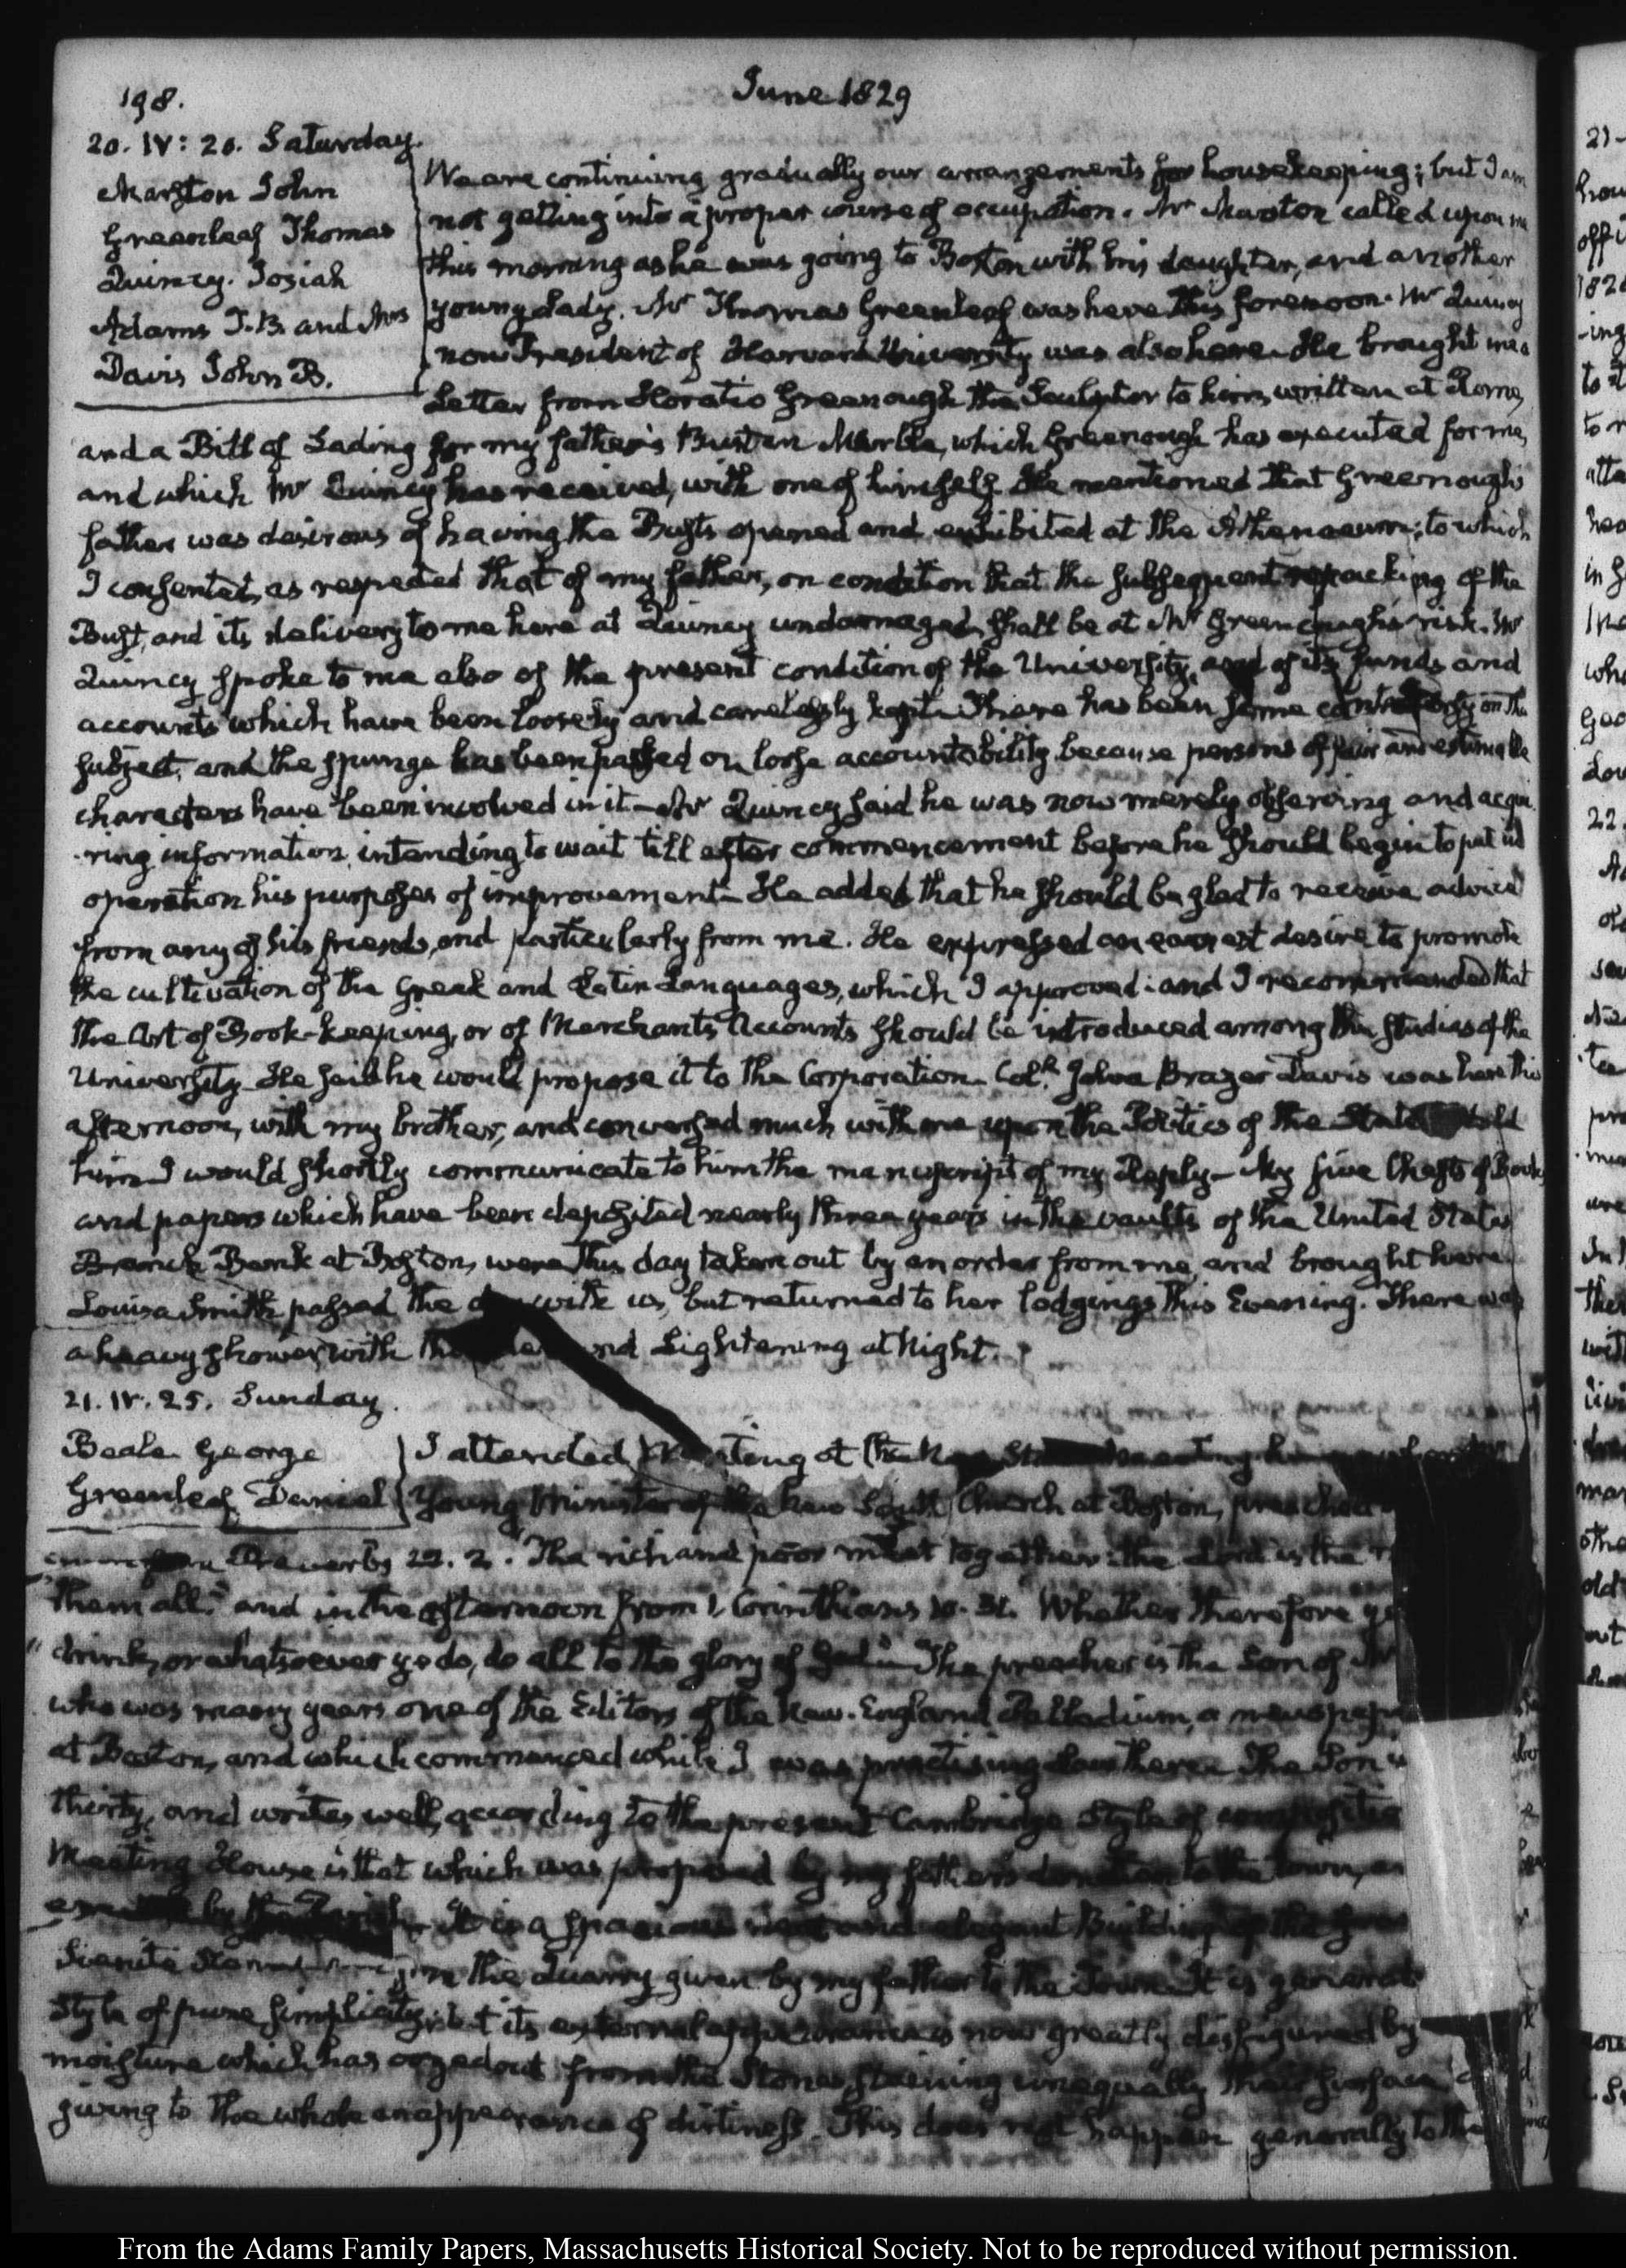 198.
June 1829
20. IV: 20. Saturday.
Marston John
Greenleaf Thomas
Quincy. Josiah
Adams T. B. and Mrs
Davis John B.
We are continuing gradually our arrangements for housekeeping; but I am
not getting into a proper course of occupation. Mr Marston called upon me
this morning as he was going to Boston with his daughter, and another
young Lady. Mr Thomas Greenleaf was here this forenoon. Mr Quincy
now President of Harvard University was also here. He brought me a
Letter from Horatio Greenough the Sculptor to him, written at Rome,
and a Bill of Lading for my father's Bust in Marble, which Greenough has executed for me,
and which Mr Quincy has received, with one of himself. He mentioned that Greenough's
father was desirous of having the Busts opened and exhibited at the Athenaeum; to which
I consented, as respected that of my father, on condition that the subsequent repacking of the
Bust, and its delivery to me here at Quincy undamaged, shall be at Mr Greenough's risk. Mr
Quincy spoke to me also of the present condition of the University, and of its funds and
accounts which have been loosely and carelessly kept. There has been some controversy on the
subject, and the spunge has been passed on loose accountability because persons of fair and estimable
characters have been involved in it — Mr Quincy said he was now merely observing and acqui-
-ring information, intending to wait till after commencement before he should begin to put in
operation his purposes of improvement — He added that he should be glad to receive advice
from any of his friends, and particularly from me. He expressed an earnest desire to promote
the cultivation of the Greek and Latin Languages, which I approved: and I recommended that
the Art of Book-keeping, or of Merchants Accounts should be introduced among the studies of the
University. He said he would propose it to the Corporation. Coll. John Brazer Davis was here this
afternoon, with my brother, and conversed much with me upon the Politics of the State told
him I would shortly communicate to him the manuscript of my Reply — My five Chests of Books
and papers which have been deposited nearly three years in the vaults of the United States
Branch Bank at Boston, were this day taken out by an order from me, and brought here.
Louisa Smith passed the day with us, but returned to her lodgings this Evening. There was
a heavy shower with and Lightening at Night.
21. IV. 25. Sunday.
Beale George
Greenleaf Daniel
I attended Meeting at the
Young Minister of the New South Church at Boston, preached
Proverbs 22. 2. "The rich and poor meet together: the Lord is the
them all." and in the afternoon from 1. Corinthians 10. 31. "Whether therefore ye
"drink, or whatsoever ye do, do all to the glory of God." The preacher is the Son of Mr
who was many years one of the Editors of the New-England Palladium, a newspaper
at Boston, and which commenced while I was practising Law there. The Son
thirty, and writes well, according to the present Cambridge Style of composition
Meeting House is that which was proposed by my father's donation to the town,
by the It is a spacious and elegant Building of the
Sienite Stone from the Quarry given by my father to the Town. It is
Style of pure simplicity; but its external appearance is now greatly disfigured by
moisture which has oozed out from the Stones staining unequally their surface
giving to the whole an appearance of dirtiness. This does not happen generally to the
From the Adams Family Papers, Massachusetts Historical Society. Not to be reproduced without permission.